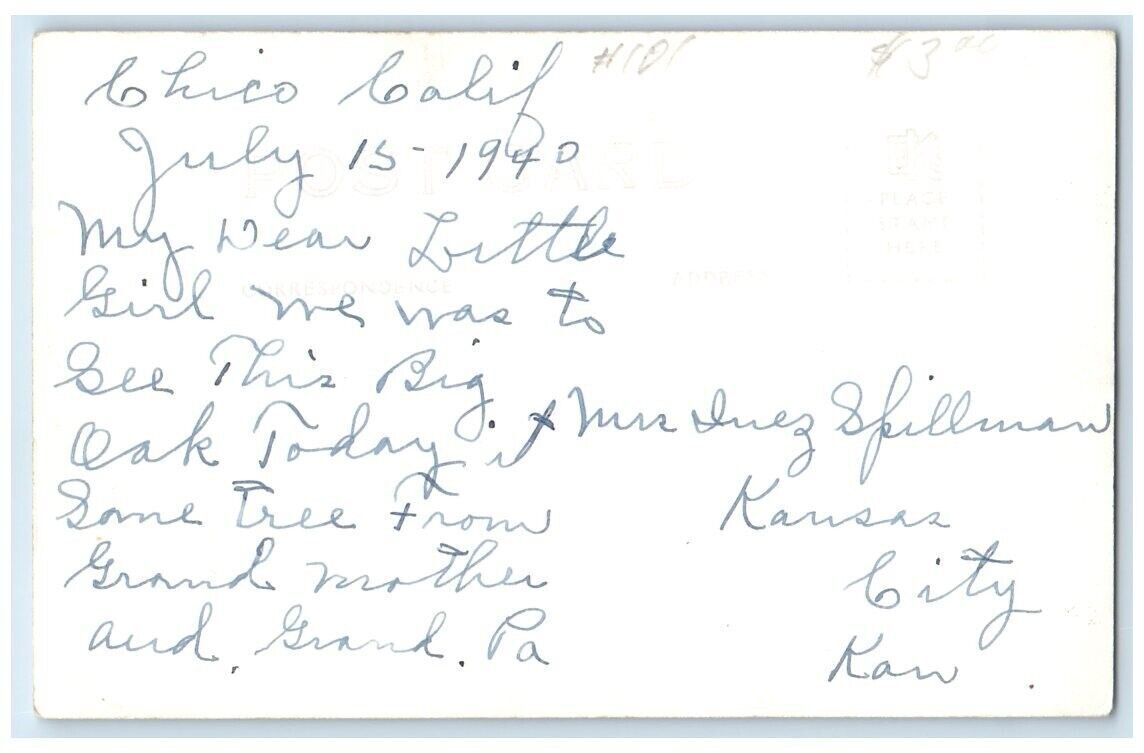 #101
$3.00
Chico Calif
July 15-1940
My Dear Little
Girl we was to
See This Big
Oak Today it
Some Tree From
Grand mother
and Grand Pa
Mrs Inez Spillman
Kansas
City
Kan
POST CARD
CORRESPONDENCE
ADDRESS
PLACE
STAMP
HERE